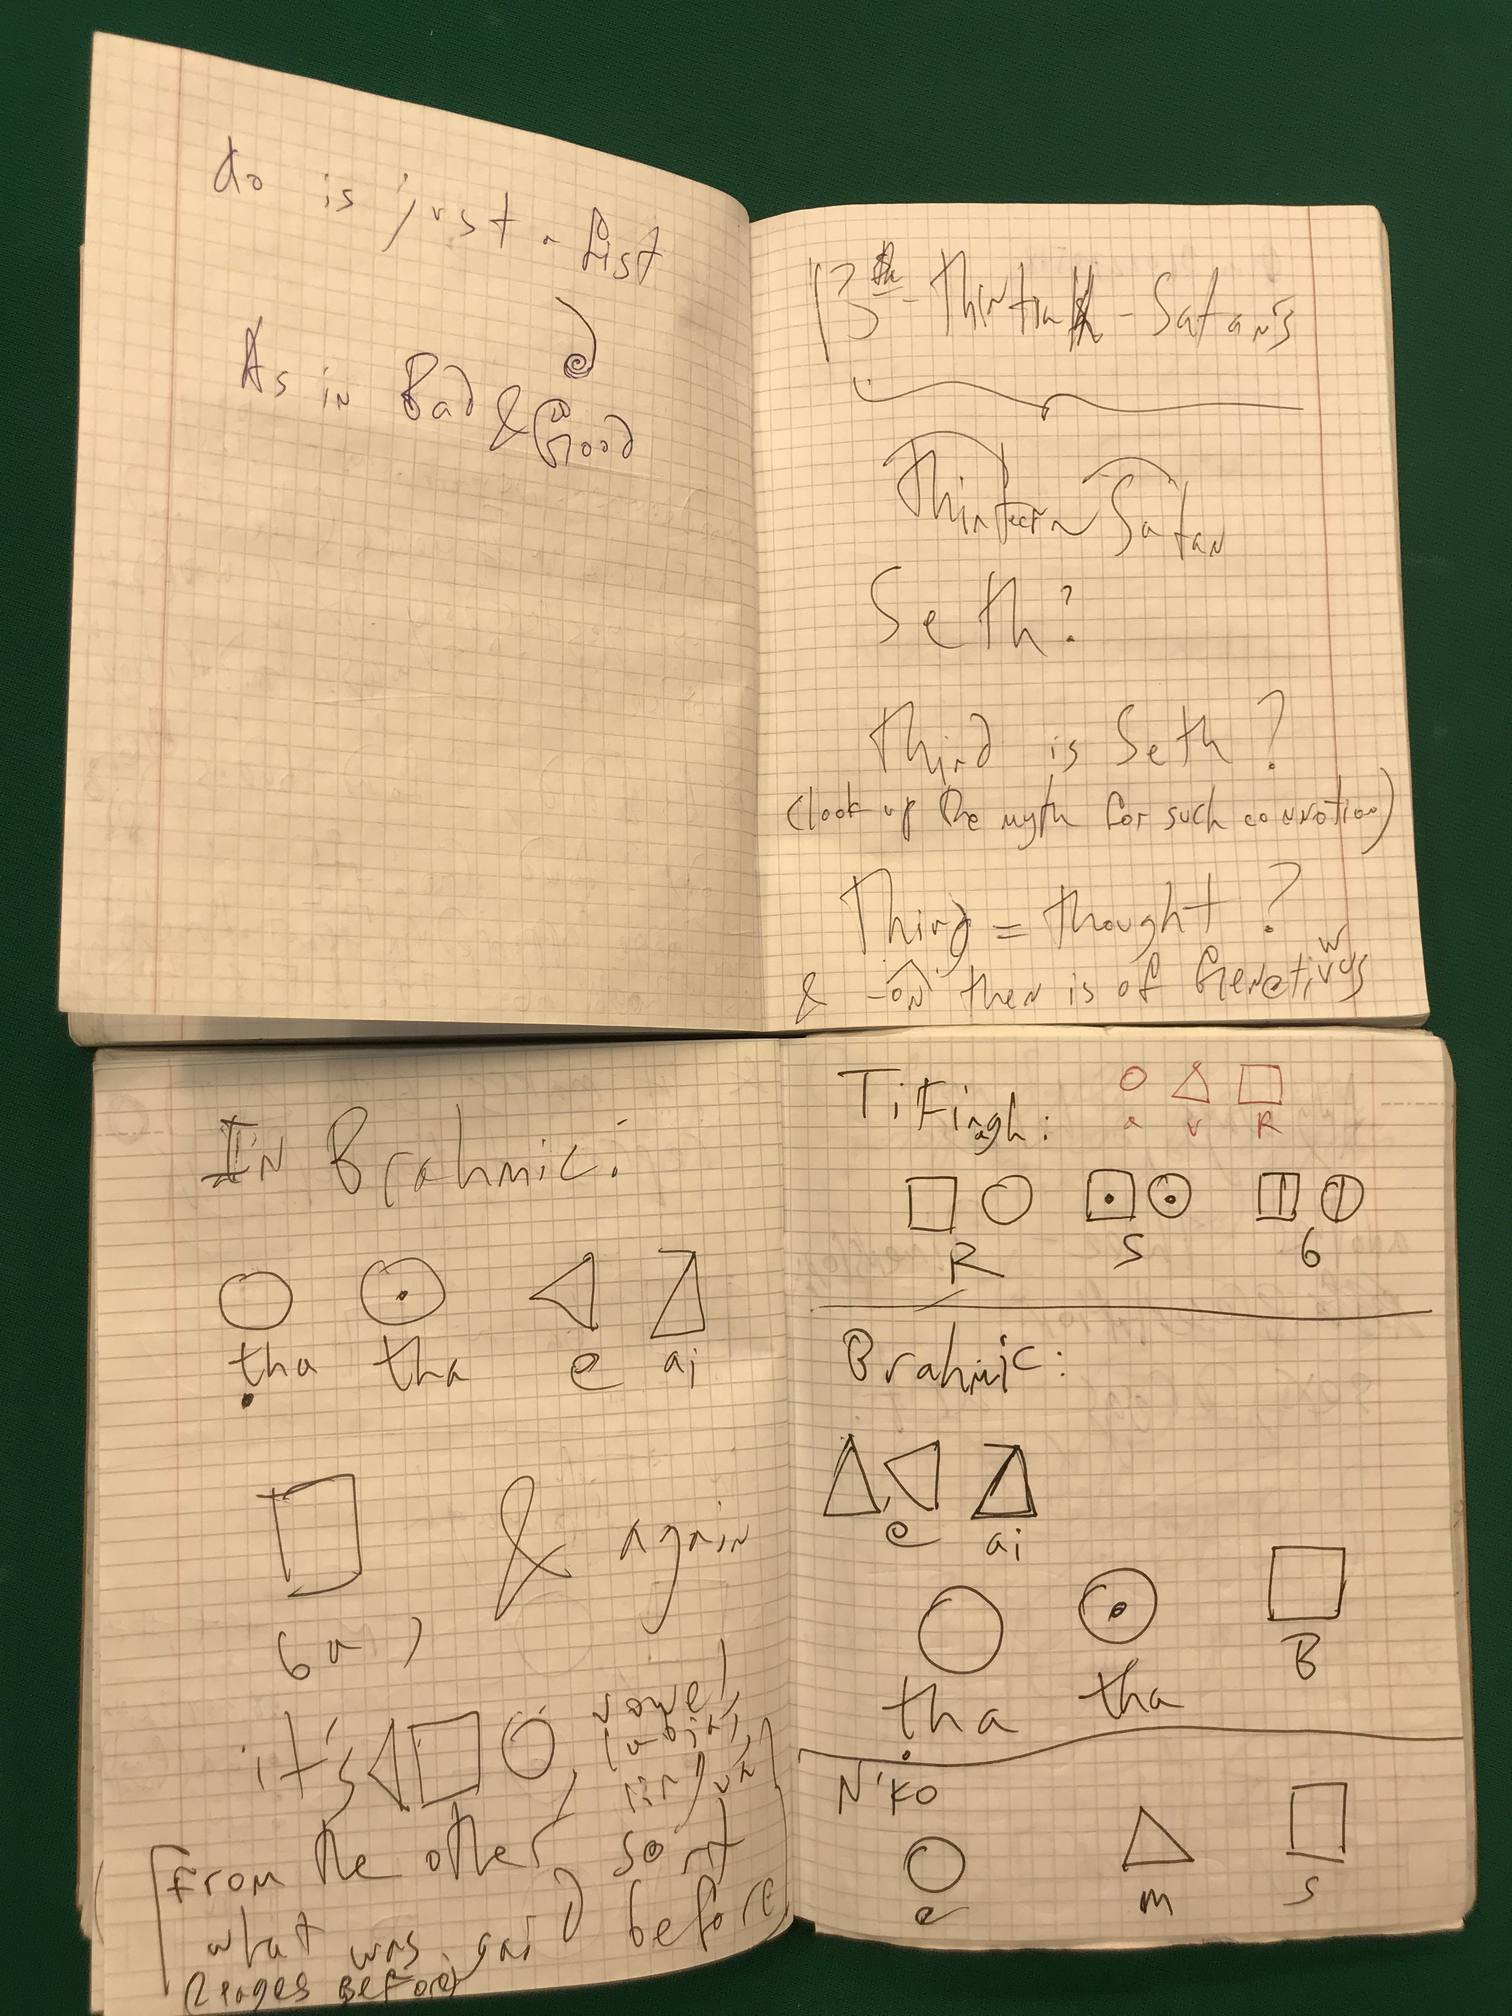 do is just a fist
As in Bad & Good
13th - thirteenth - Satan's
Thirteen Satan
Seth?
Third is Seth?
(look up the myth for such connotion)
Third = thought?
& -on then is of Genetivus
w
In Brahmic:
tha tha e ai
ba, & again
it's
vowel,
labial,
lingual
from the other, sort
what was said before
(2 pages before)
Tifinagh:
a v R
R S b
Brahmic:
e ai
tha tha B
N'ko
e m s